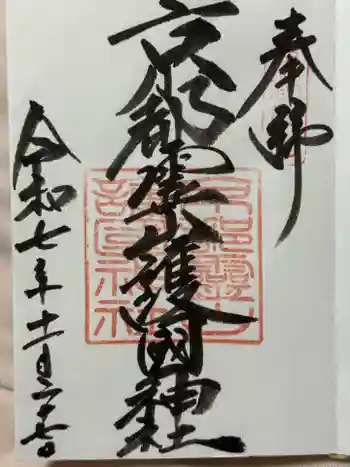 奉拝
京都霊山護國神社
令和七年十二月二十七日